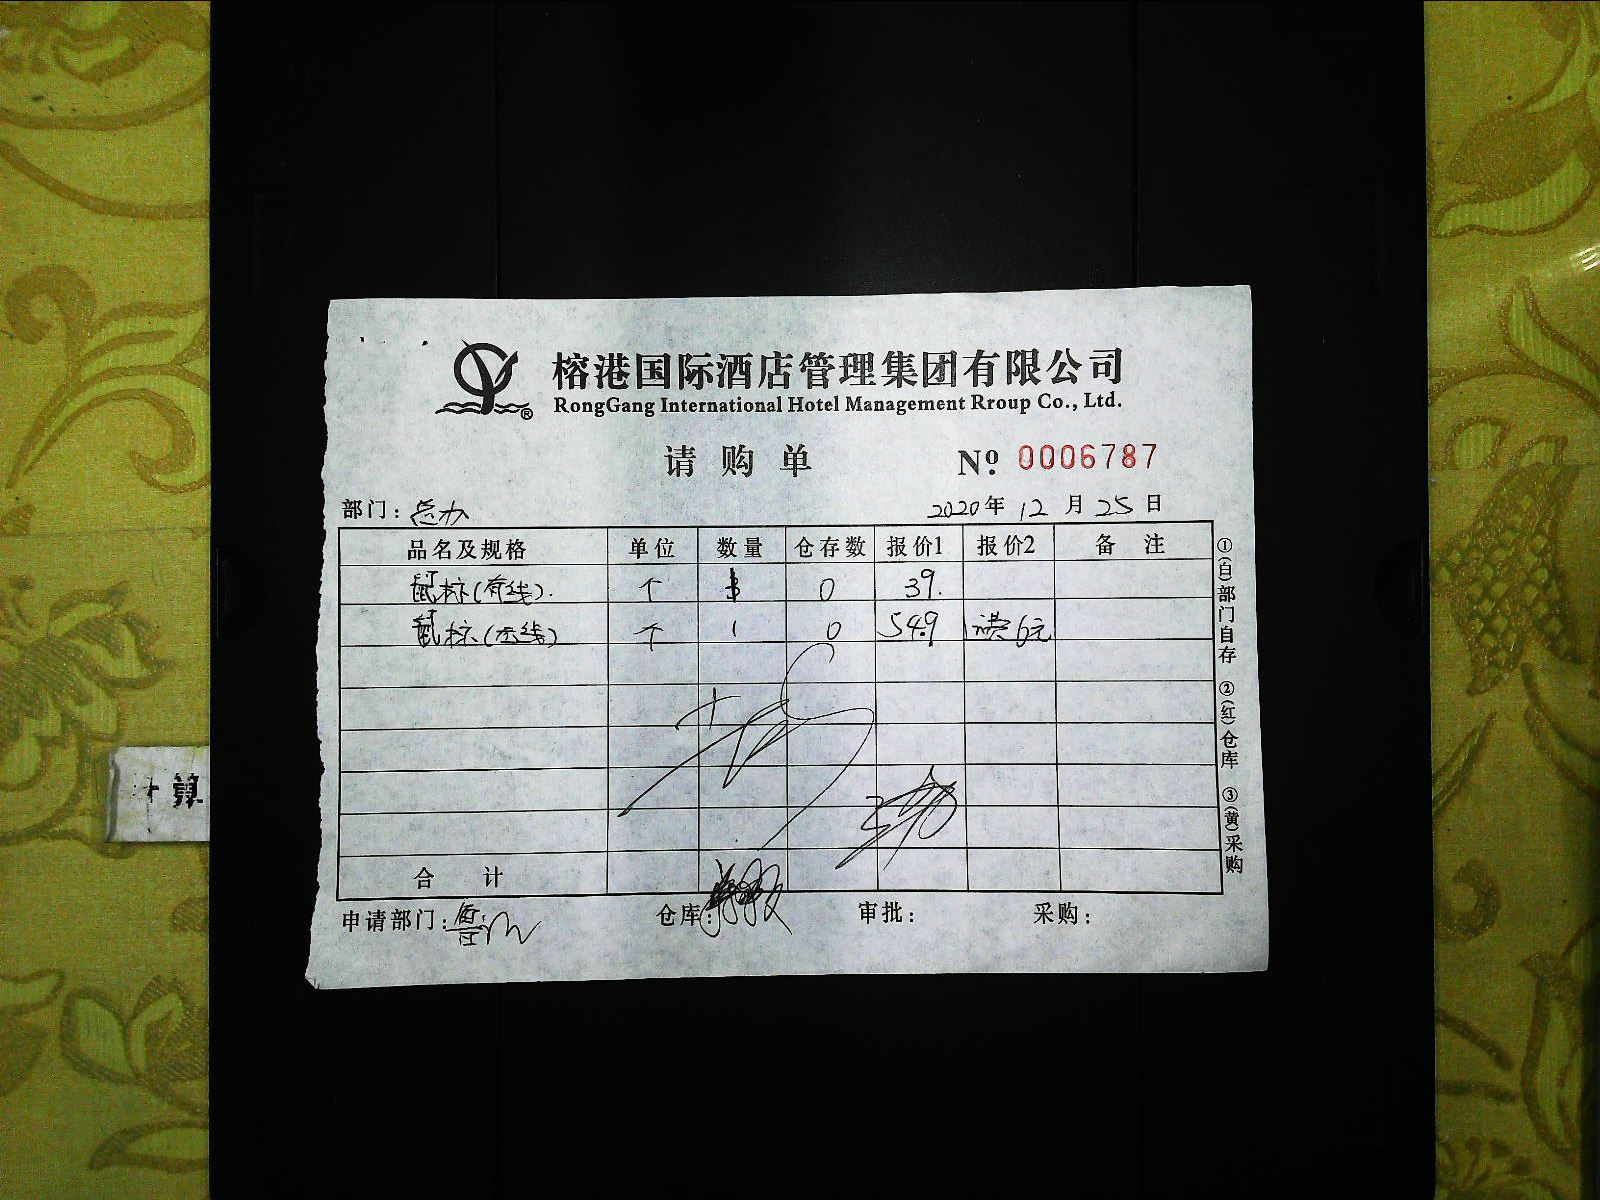 榕港国际酒店管理集团有限公司
®
RongGang International Hotel Management Rroup Co., Ltd.
请购单 Nº 0006787
部门：总办 2020年12月25日
品名及规格 单位 数量 仓存数 报价1 报价2 备注
鼠标(有线). 个 0 39.
鼠标(无线) 个 1 0 54.9 运费6元
合计
申请部门： 仓库： 审批： 采购：
①(白)部门自存 ②(红)仓库 ③(黄)采购
计算